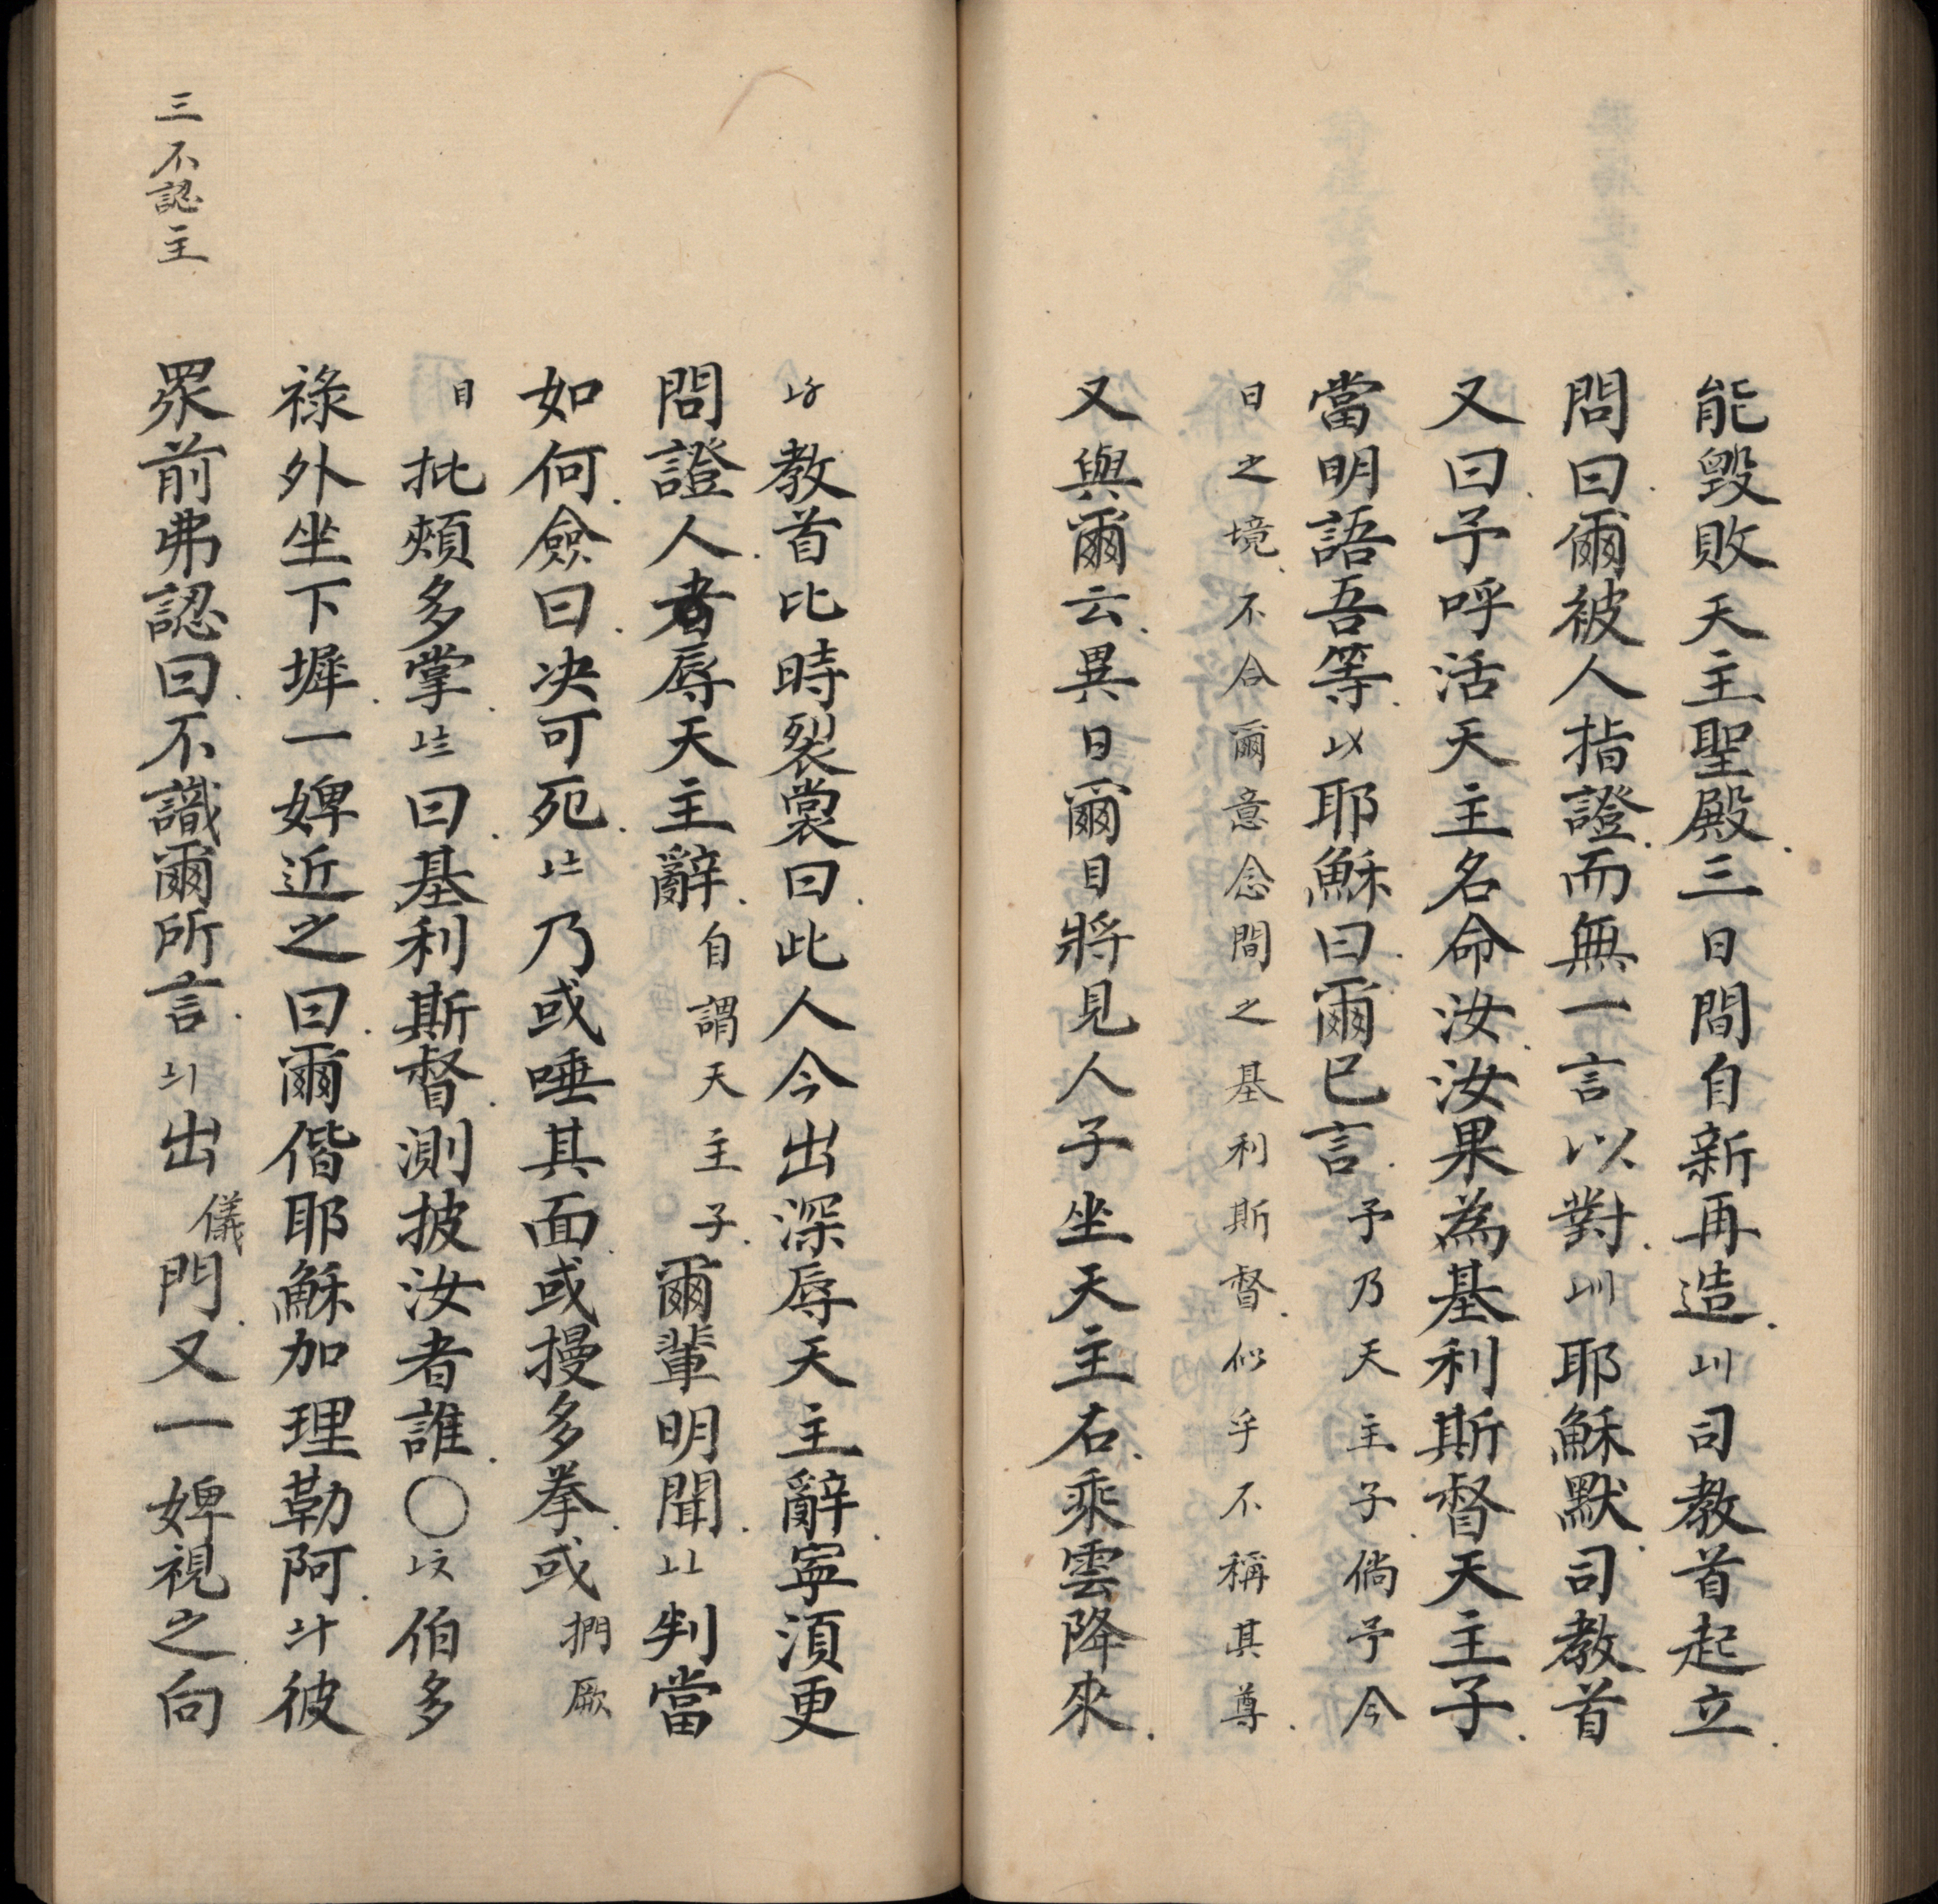 能毀敗天主聖殿三日間自新再造〢司教首起立
問曰爾被人指證而無一言以對〣耶穌默司教首
又曰予呼活天主名命汝汝果為基利斯督天主子
當明語吾等〤耶穌曰爾已言予乃天主子倘予今
日之境不合爾意念間之基利斯督似乎不稱其尊
又與爾云異日爾目將見人子坐天主右乘雲降來
教首比時裂裳曰此人今出深辱天主辭寍須更
問證人者辱天主辭自謂天主子爾輩明聞判當
如何僉曰决可死乃或唾其面或摱多拳或捫厥
目批頰多掌曰基利斯督測披汝者誰〇伯多
祿外坐下墀一婢近之曰爾偕耶穌加理勒阿彼
三不認主
眾前弗認曰不識爾所言出儀門又一婢視之向